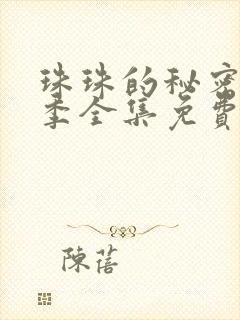 珠珠的秘密
季全集免費
陳蓓